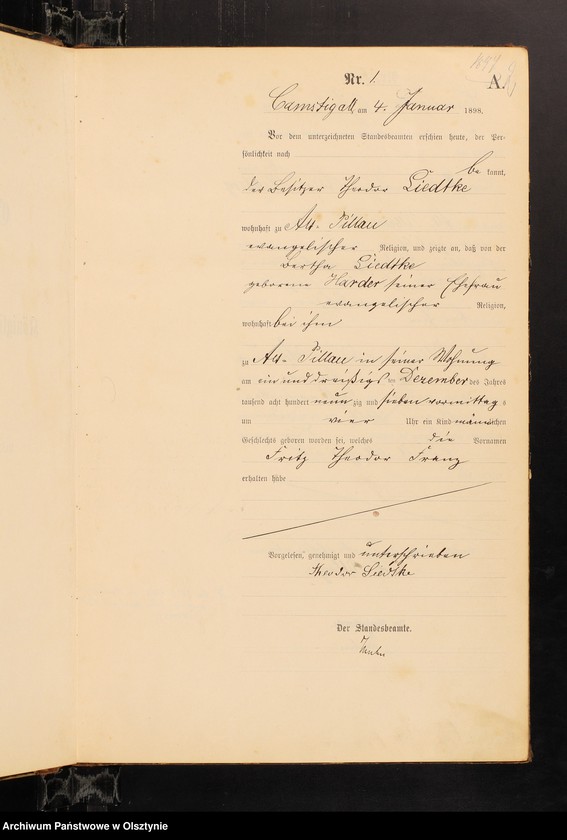 1897
Nr. 1.
A.
Camstigall am 4. Januar 1898.
Vor dem unterzeichneten Standesbeamten erschien heute, der Per-
sönlichkeit nach
be kannt,
der Besitzer Theodor Liedtke
wohnhaft zu Alt-Pillau
evangelischer Religion, und zeigte an, daß von der
Bertha Liedtke
geborene Harder seiner Ehefrau
evangelischer Religion,
wohnhaft bei ihm
zu Alt-Pillau in seiner Wohnung
am ein und dreißigsten Dezember des Jahres
tausend acht hundert neun zig und sieben vormittags
um vier Uhr ein Kind männlichen
Geschlechts geboren worden sei, welches die Vornamen
Fritz Theodor Franz
erhalten habe
Vorgelesen, genehmigt und unterschrieben
Theodor Liedtke
Der Standesbeamte.
Archiwum Państwowe w Olsztynie